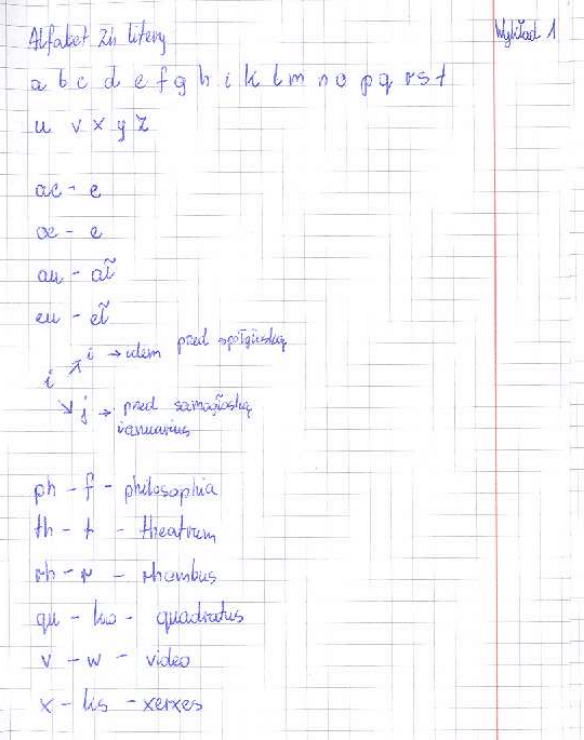 Alfabet 24 litery
Wykład 1
a b c d e f g h i k l m n o p q r s t
u v x y z
ae - e
oe - e
au - ał
eu - eł
i ↗ i → idem pred spółgłoską
↘ j → pred samogłoską
ianuarius
ph - f - philosophia
th - t - theatrum
rh - r - rhombus
qu - kw - quadratus
v - w - video
x - ks - xerxes